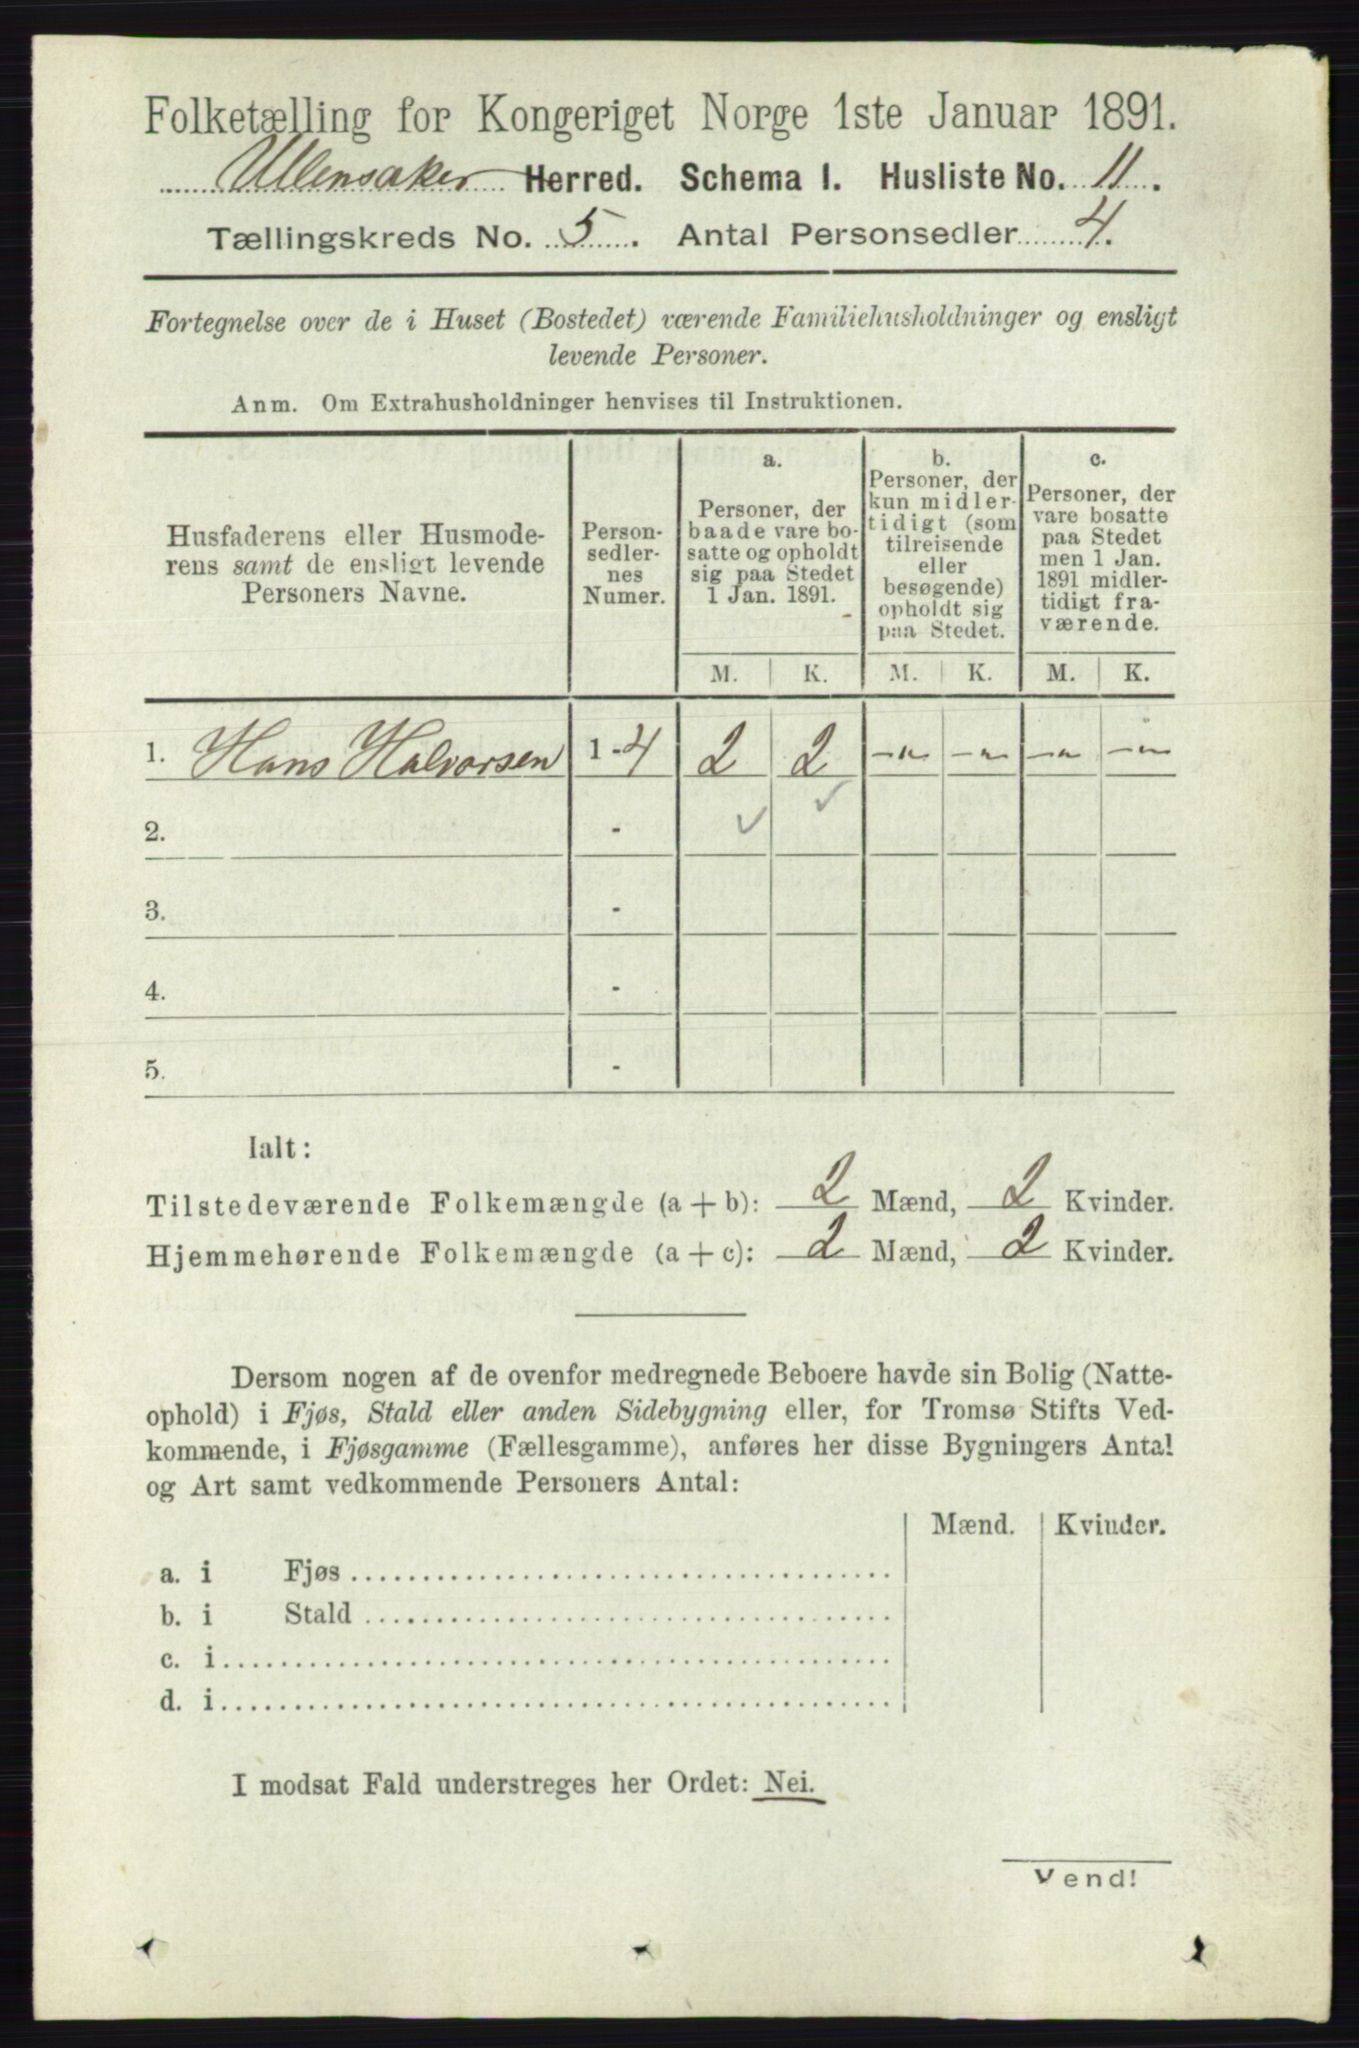 Folketælling for Kongeriget Norge 1ste Januar 1891.
Ullensaker Herred. Schema I. Husliste No. 11.
Tællingskreds No. 5. Antal Personsedler 4.
Fortegnelse over de i Huset (Bostedet) værende Familiehusholdninger og ensligt
levende Personer.
Anm. Om Extrahusholdninger henvises til Instruktionen.
Husfaderens eller Husmode-
rens samt de ensligt levende
Personers Navne.
Person-
sedler-
nes
Numer.
a.
Personer, der
baade vare bo-
satte og opholdt
sig paa Stedet
1 Jan. 1891.
b.
Personer, der
kun midler-
tidigt (som
tilreisende
eller
besøgende)
opholdt sig
paa Stedet.
c.
Personer, der
vare bosatte
paa Stedet
men 1 Jan.
1891 midler-
tidigt fra-
værende.
M. K. M. K. M. K.
1. Hans Halvorsen 1-4 2 2 -„- -„- -„- -„-
2. -
3. -
4. -
5. -
Ialt:
Tilstedeværende Folkemængde (a + b): 2 Mænd, 2 Kvinder.
Hjemmehørende Folkemængde (a + c): 2 Mænd, 2 Kvinder.
Dersom nogen af de ovenfor medregnede Beboere havde sin Bolig (Natte-
ophold) i Fjøs, Stald eller anden Sidebygning eller, for Tromsø Stifts Ved-
kommende, i Fjøsgamme (Fællesgamme), anføres her disse Bygningers Antal
og Art samt vedkommende Personers Antal:
Mænd. Kvinder.
a. i Fjøs
b. i Stald
c. i
d. i
I modsat Fald understreges her Ordet: Nei.
Vend!